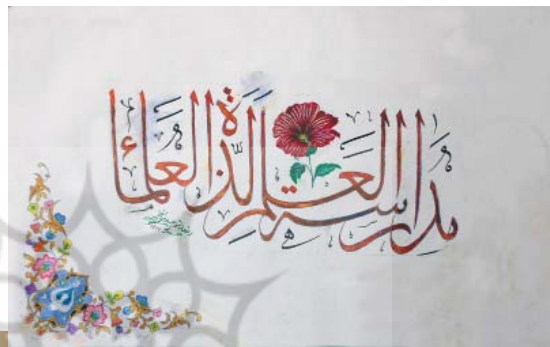 مدارسة العلم لذة العلماء